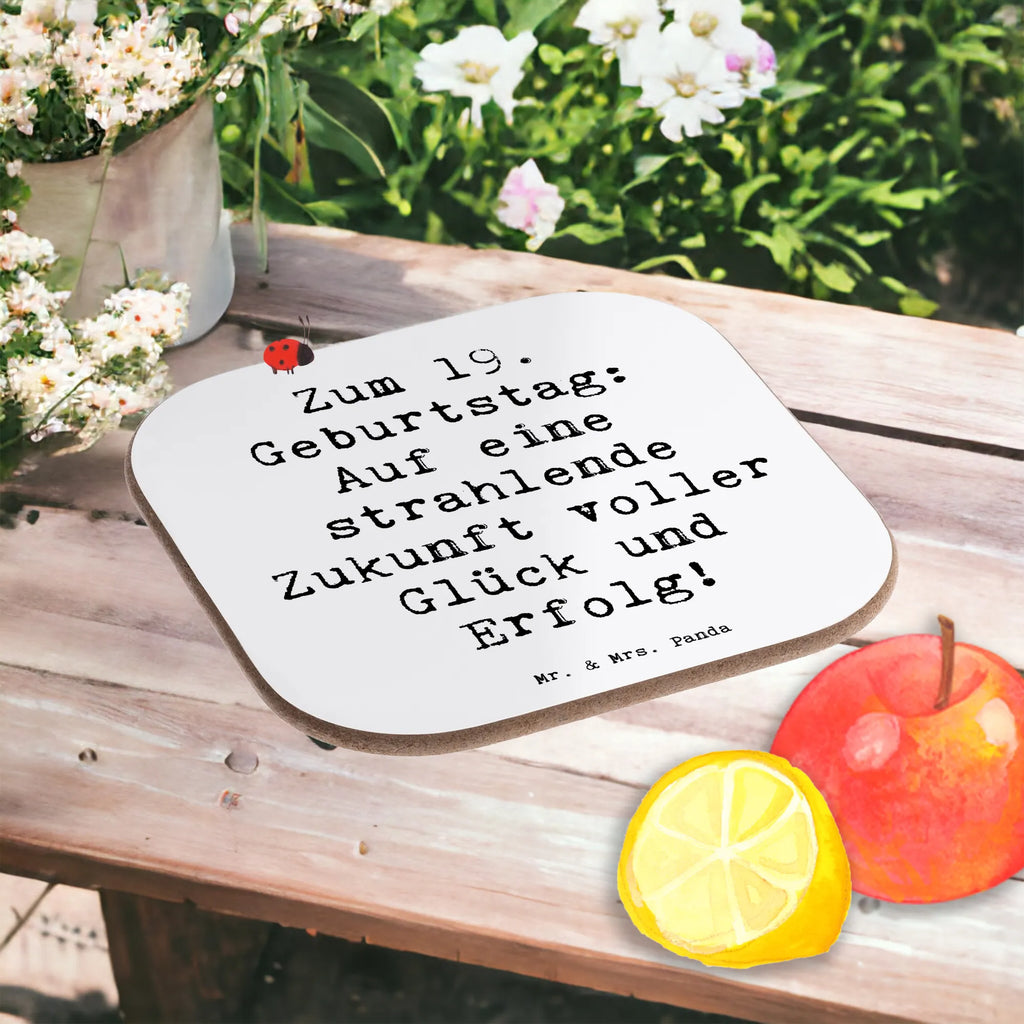 Zum 19.
Geburtstag:
Auf eine
strahlende
Zukunft voller
Glück und
Erfolg!
Mr. & Mrs. Panda